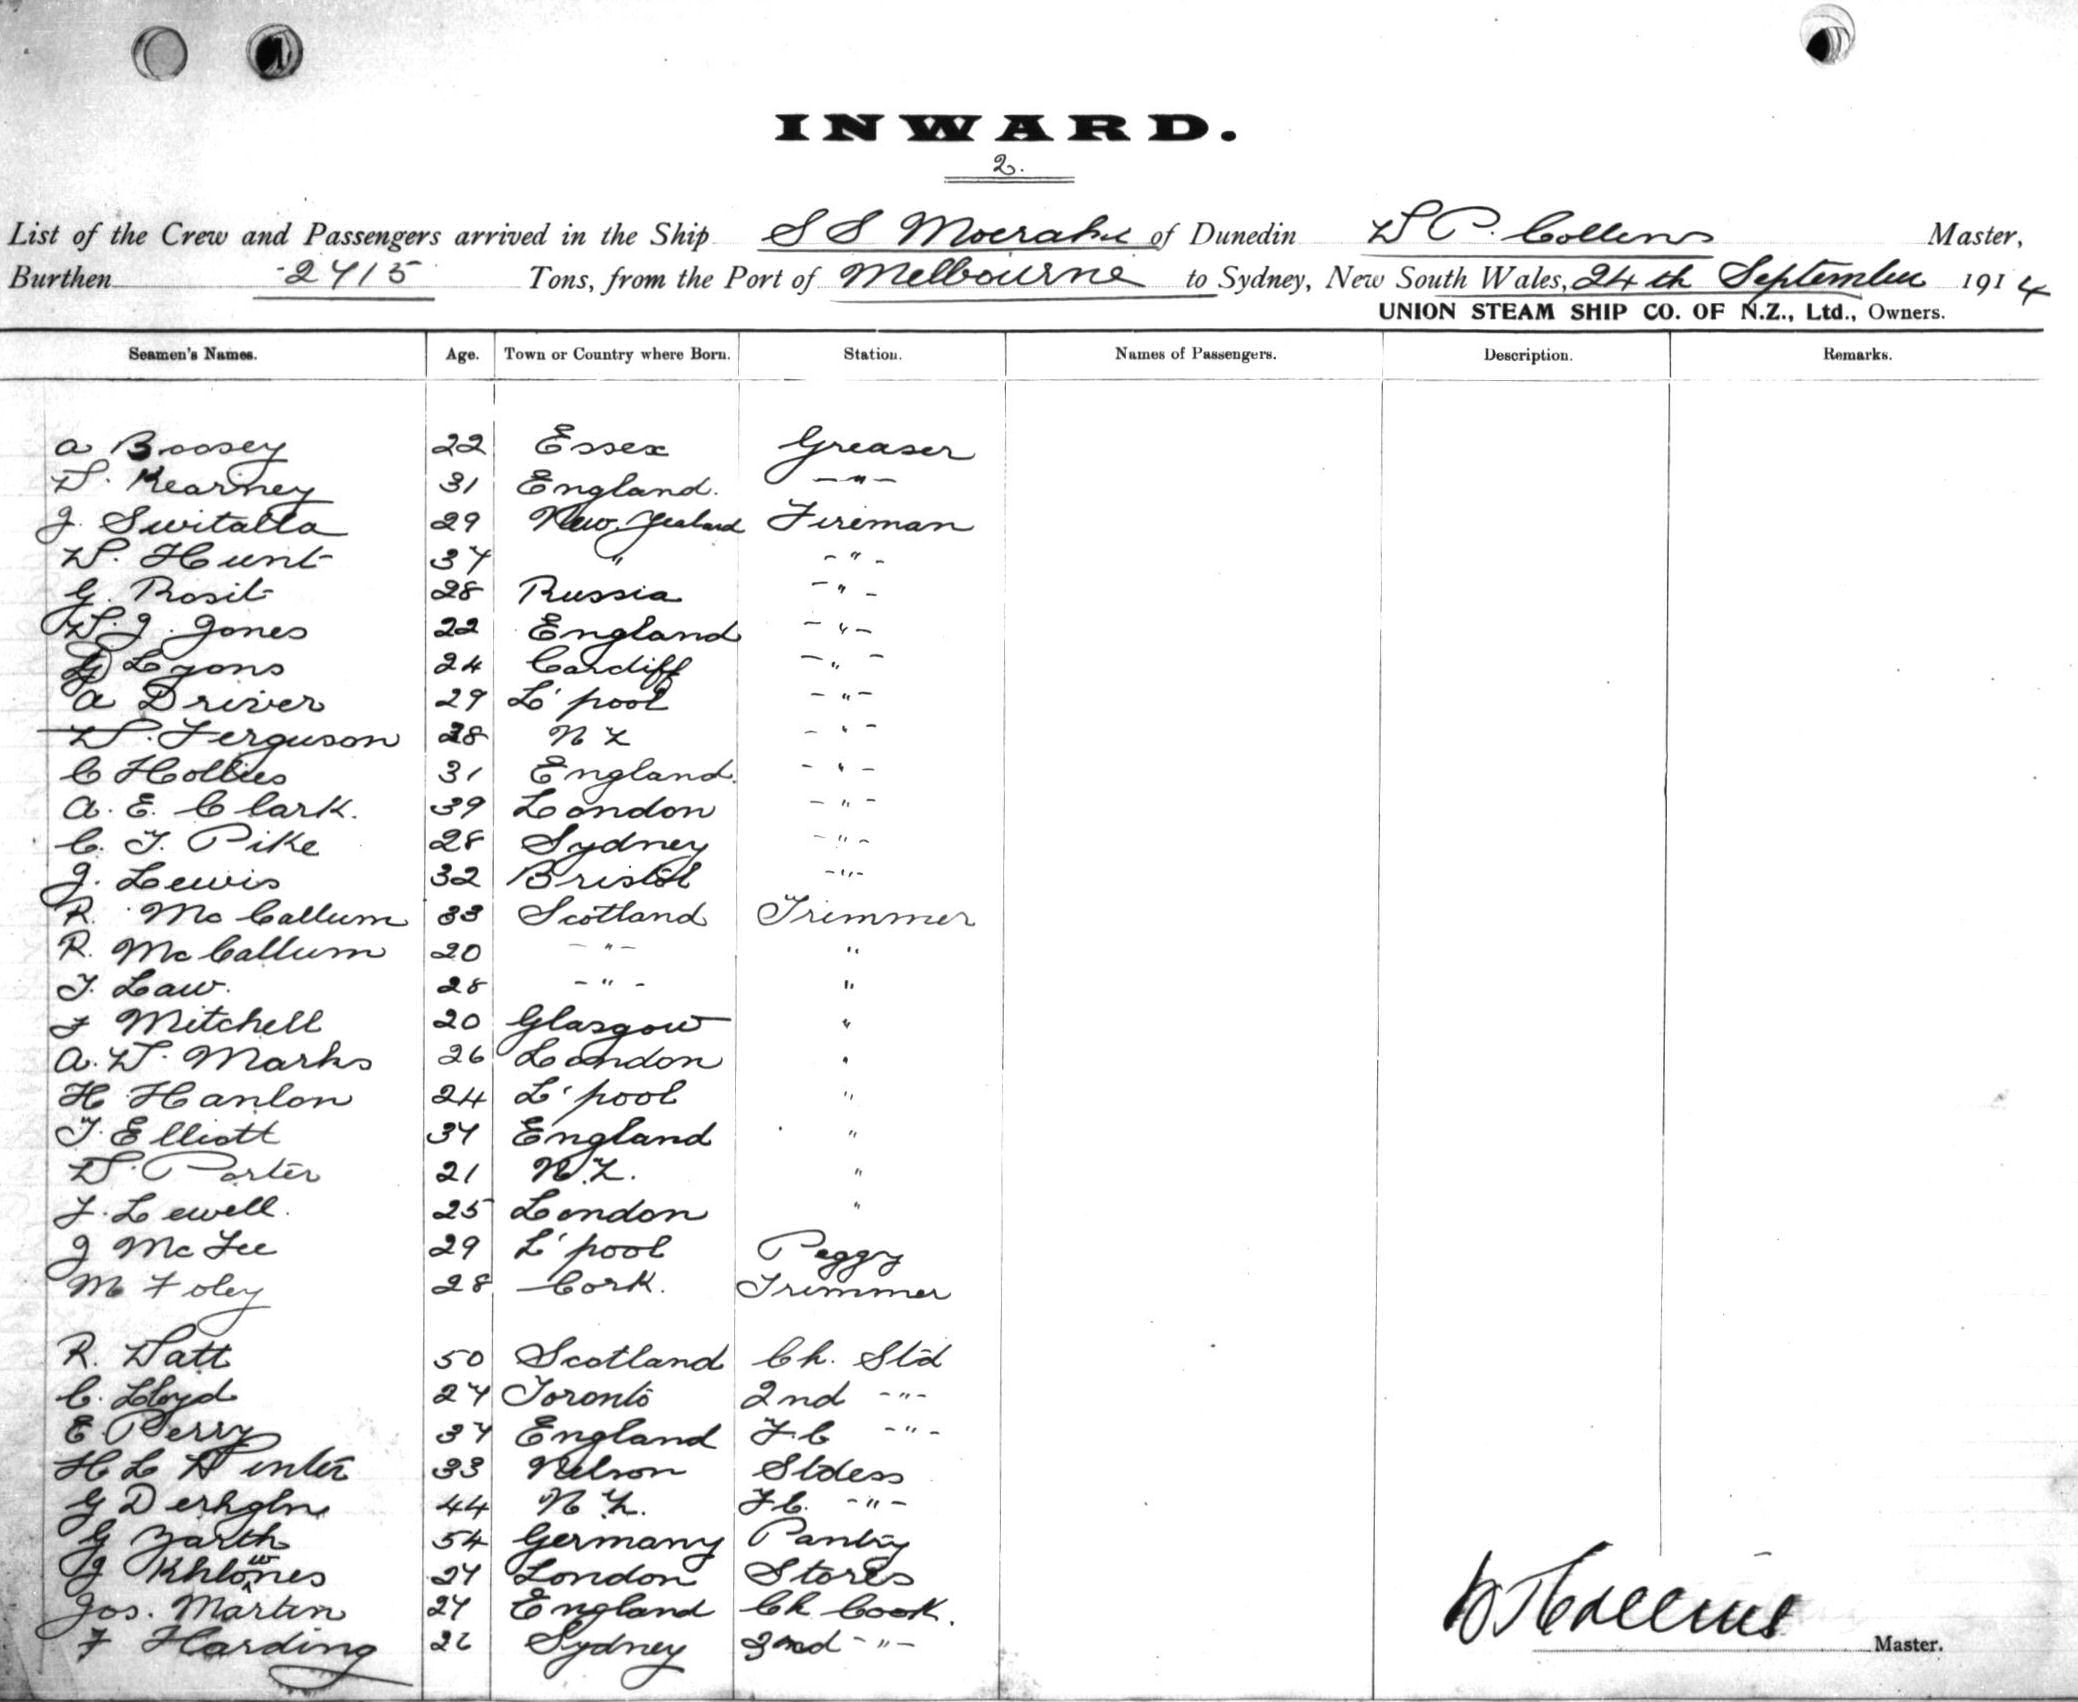 INWARD.
2.
List of the Crew and Passengers arrived in the Ship S S Moeraki of Dunedin W P. Collins Master,
Burthen 2715 Tons, from the Port of Melbourne to Sydney, New South Wales, 24th September 1914
UNION STEAM SHIP CO. OF N.Z., Ltd., Owners.
Seamen's Names. Age. Town or Country where Born. Station. Names of Passengers. Description. Remarks.
A Boosey 22 Essex Greaser
W. Kearney 31 England. -"-
J. Switalla 29 New Zealand Fireman
W. Hunt 37 " -"-
G. Rosit 28 Russia -"-
W. J. Jones 22 England -"-
Lyons 24 Cardiff -"-
A Driver 29 L'pool -"-
W. Ferguson 28 N Z -"-
C Hollies 31 England. -"-
A. E. Clark. 39 London -"-
C. T. Pike 28 Sydney -"-
J. Lewis 32 Bristol -"-
R. McCallum 33 Scotland Trimmer
R. McCallum 20 -"- "
T. Law. 28 -"- "
F Mitchell 20 Glasgow "
A. W. Marks 26 London "
H Hanlon 24 L'pool "
T. Elliott 37 England "
W. Porter 21 N.Z. "
F. Lewell. 25 London "
J McFee 29 L'pool Peggy
M Foley 28 Cork. Trimmer
R. Watt 50 Scotland Ch. Std
C. Lloyd 27 Toronto 2nd -"-
E Perry 37 England F.C -"-
H L Winter 33 Nelson Stdess
G 44 N.Z. F.C. -"-
G Zarth 54 Germany Pantry
J 27 London Stores
Jos. Martin 27 England Ch Cook.
F Harding 26 Sydney 2nd -"-
W P Collins
Master.